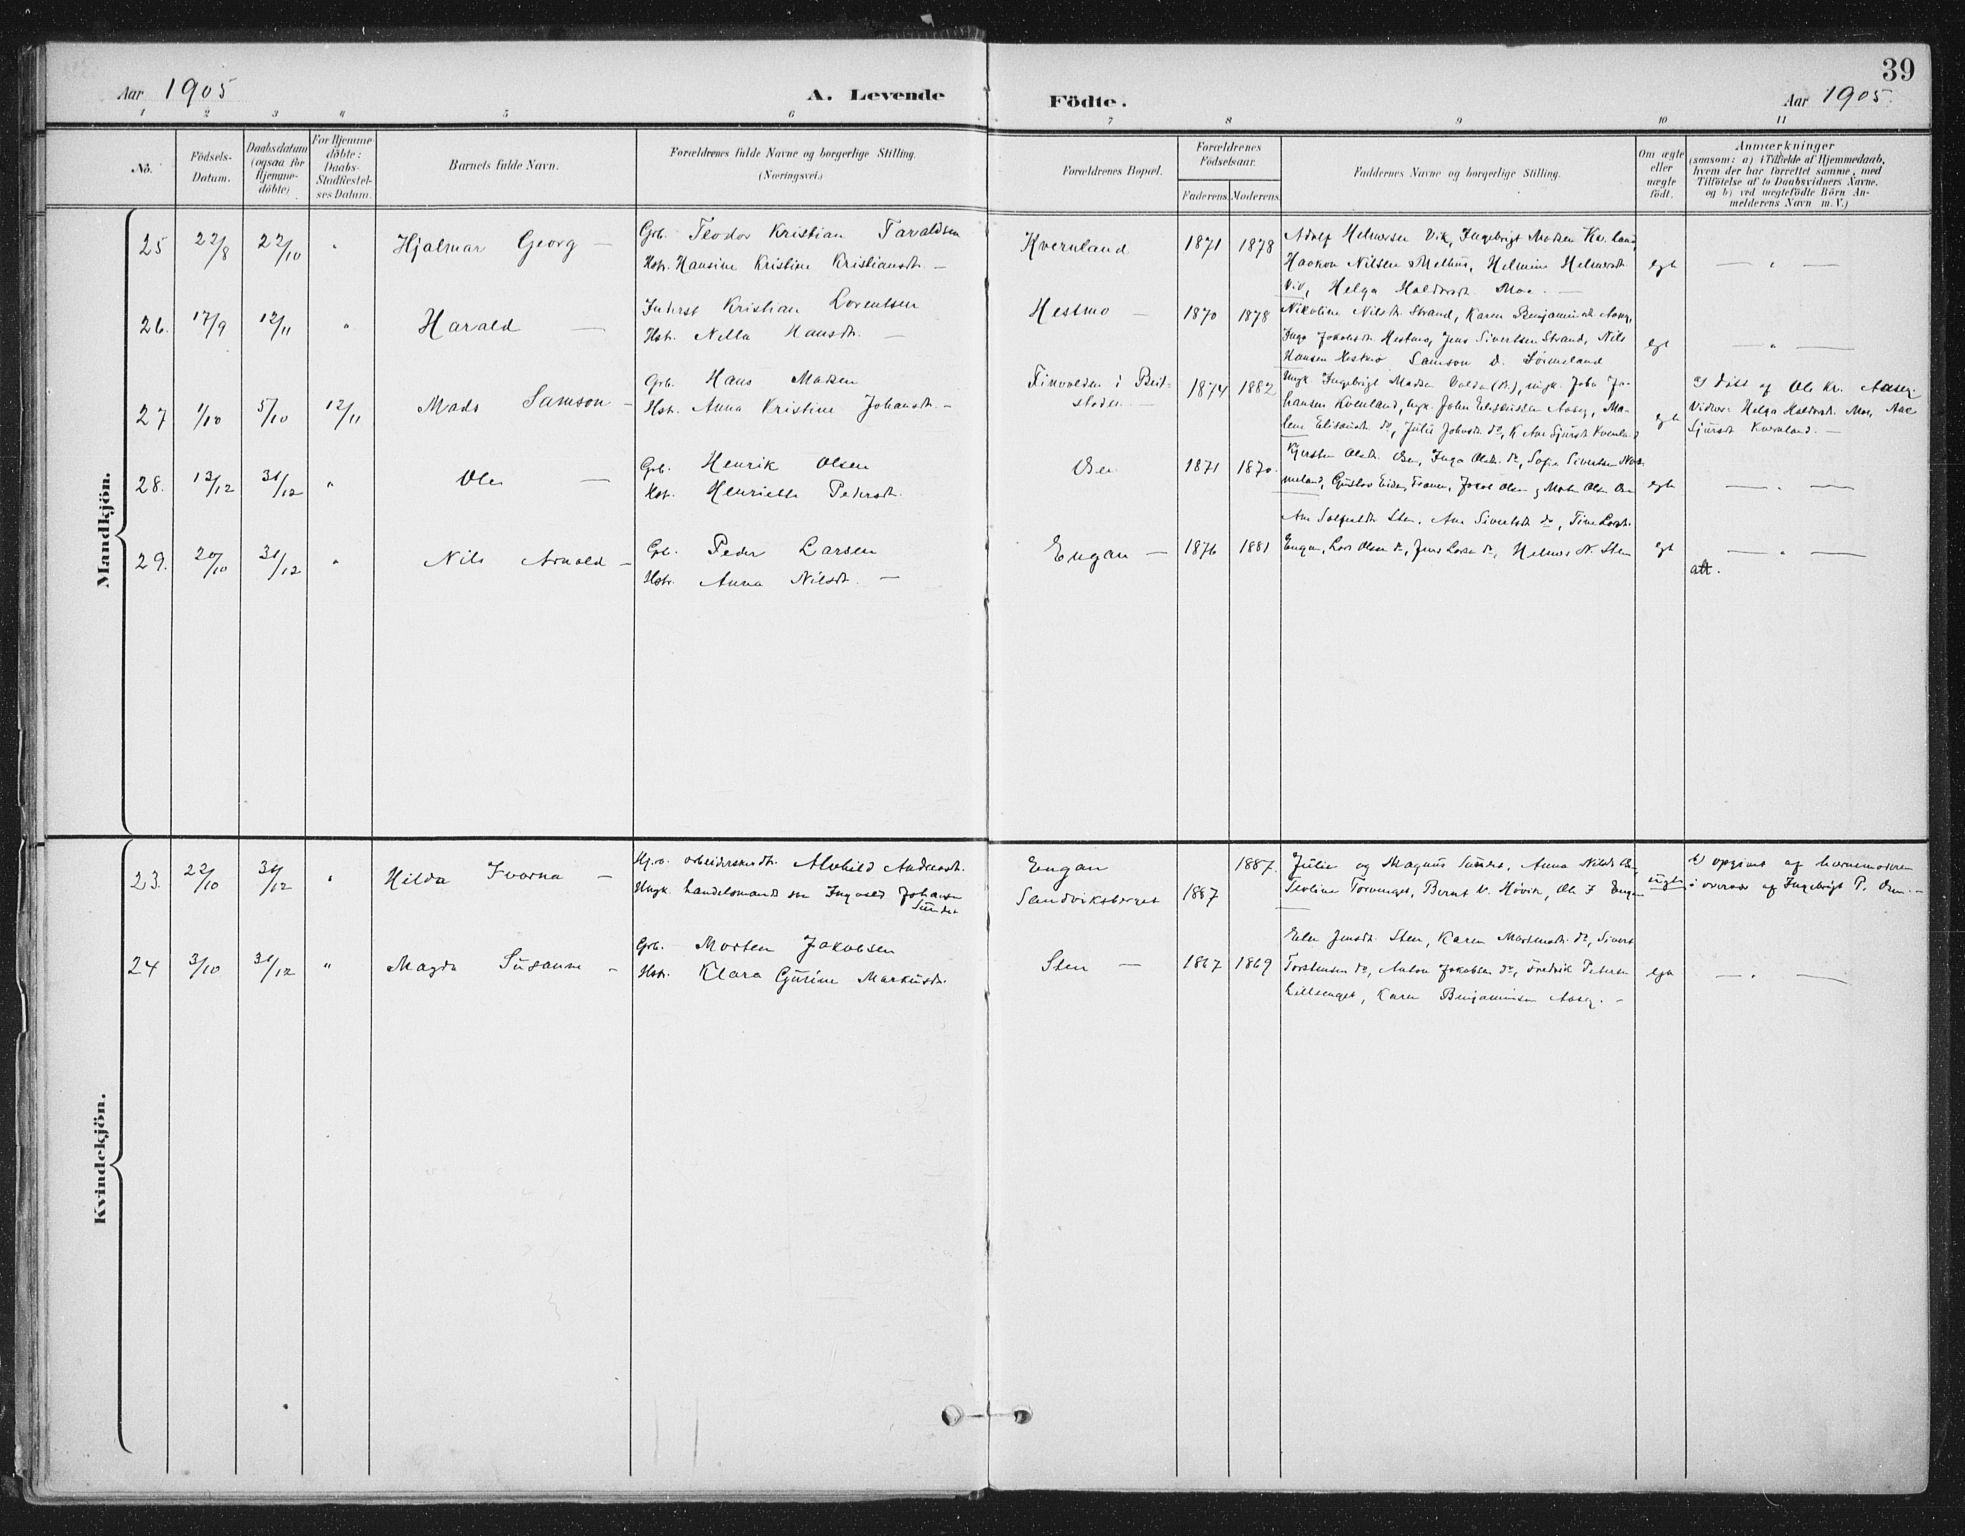 39
Aar 1905 A. Levende Födte. Aar 1905.
1 2 3 4 5 6 7 8 9 10 11
No.
Födsels-Datum.
Daabsdatum (ogsaa for Hjemme-döbte)
For Hjemme döbte: Daabs-Stadfæstel-ses Datum.
Barnets fulde Navn.
Forældrenes fulde Navne og borgerlige Stilling.
(Næringsvei.)
Forældrenes Bopæl.
Forældrenes Födselsaar.
Faderens. Moderens.
Faddernes Navne og borgerlige Stilling.
Om ægte eller uægte födt.
Anmærkninger
(saasom: a) i Tilfælde af Hjemmedaab,
hvem der har forrettet samme, med
Tilföielse af to Daabsvidners Navne,
og b) ved uægtefödte Börn An-
melderens Navn m. V.)
Mandkjön.
25 22/8 22/10 " Hjalmar Georg — Grb. Teodor Kristian Taraldsen
Hstr. Hansine Kristine Kristiansdt. —
Kvernland 1871 1878
Adolf Helmersen Vik, Ingebrigt Madsen Kv.land,
Haakon Nilsen Melhus, Helmine Helmersdt.
Vik, Helga Haldorsdt. Moe. —
egt — " —
26. 17/9 12/11 " Harald — Inderst Kristian Lorentsen
Hstr. Nella Hansdt. —
Hestmo — 1870 1878
Nikoline Nilsdt. Strand, Karen Benjaminsdt. Aaseg,
Inga Jakobsdt. Hestmo, Jens Sivertsen Strand, Nils
Hansen Hestmo Samson D.
egt — " —
27 1/10 5/10 12/11 Mads Samson — Grb. Hans Madsen
Hstr. Anna Kristine Johansdt. —
i Beit-
staden — 1874 1882
Ungk. Ingebrigt Madsen ungk. Johan Jo-
hansen Kvernland, ungk. John Aaseg, Ma-
lene do, Julie Johnsdt. do, Ane Sjursdt. Kvernland
egt
a) döbt af Ole Kr. Aaseg.
Vidner: Helga Haldorsdt. Moe, Ane
Sjursdt. Kvernland. —
28. 13/12 31/12 " Ole — Grb. Henrik Olsen
Hstr. Henriette Pedersdt.
Osen 1871 1870.
Kjersten Olsdt. Osen, Inga Olsdt. do, Sofie Sivertsen
Gustav Jakob Olsen og Olsen
egt — " —
29. 20/10 31/12 " Nils Arnold — Grb. Peder Larsen
Hstr. Anna Nilsdt. —
Engan — 1876 1881
Ane Sten, Ane Sivertsdt. do,
Engan, Lars Olsen do, Jens Larsen do, Helmer N. Sten
egt — " —
att.
Kvindekjön.
23. 22/10 31/12 " Hilda Ivarna — arbeiderskedt. Alvhild Andreasdt.
Ungk. handelsmands søn Ingvald Johansen
Sundet
Engan 1887.
Sandviksberget 1887
Julie og Magnus Sundet, Anna Nilsdt.
Teoline Torvenget, Bernt N. Hövik, Ole J. Engan
uegte
b) opgivet af barnemoderen
i overvær af Ingebrigt P. Osen. —
24 3/10 31/12 " Magda Susanne — Grb. Morten Jakobsen
Hstr. Klara Gurine Markusdt.
Sten — 1867 1869
Elen Jensdt. Sten, Karen Martinsdt. do, Sivert
Torstensen do, Anton Jakobsen do, Fredrik Petersen
Lilleenget, Karen Benjaminsen Aaseg. —
egt — " —